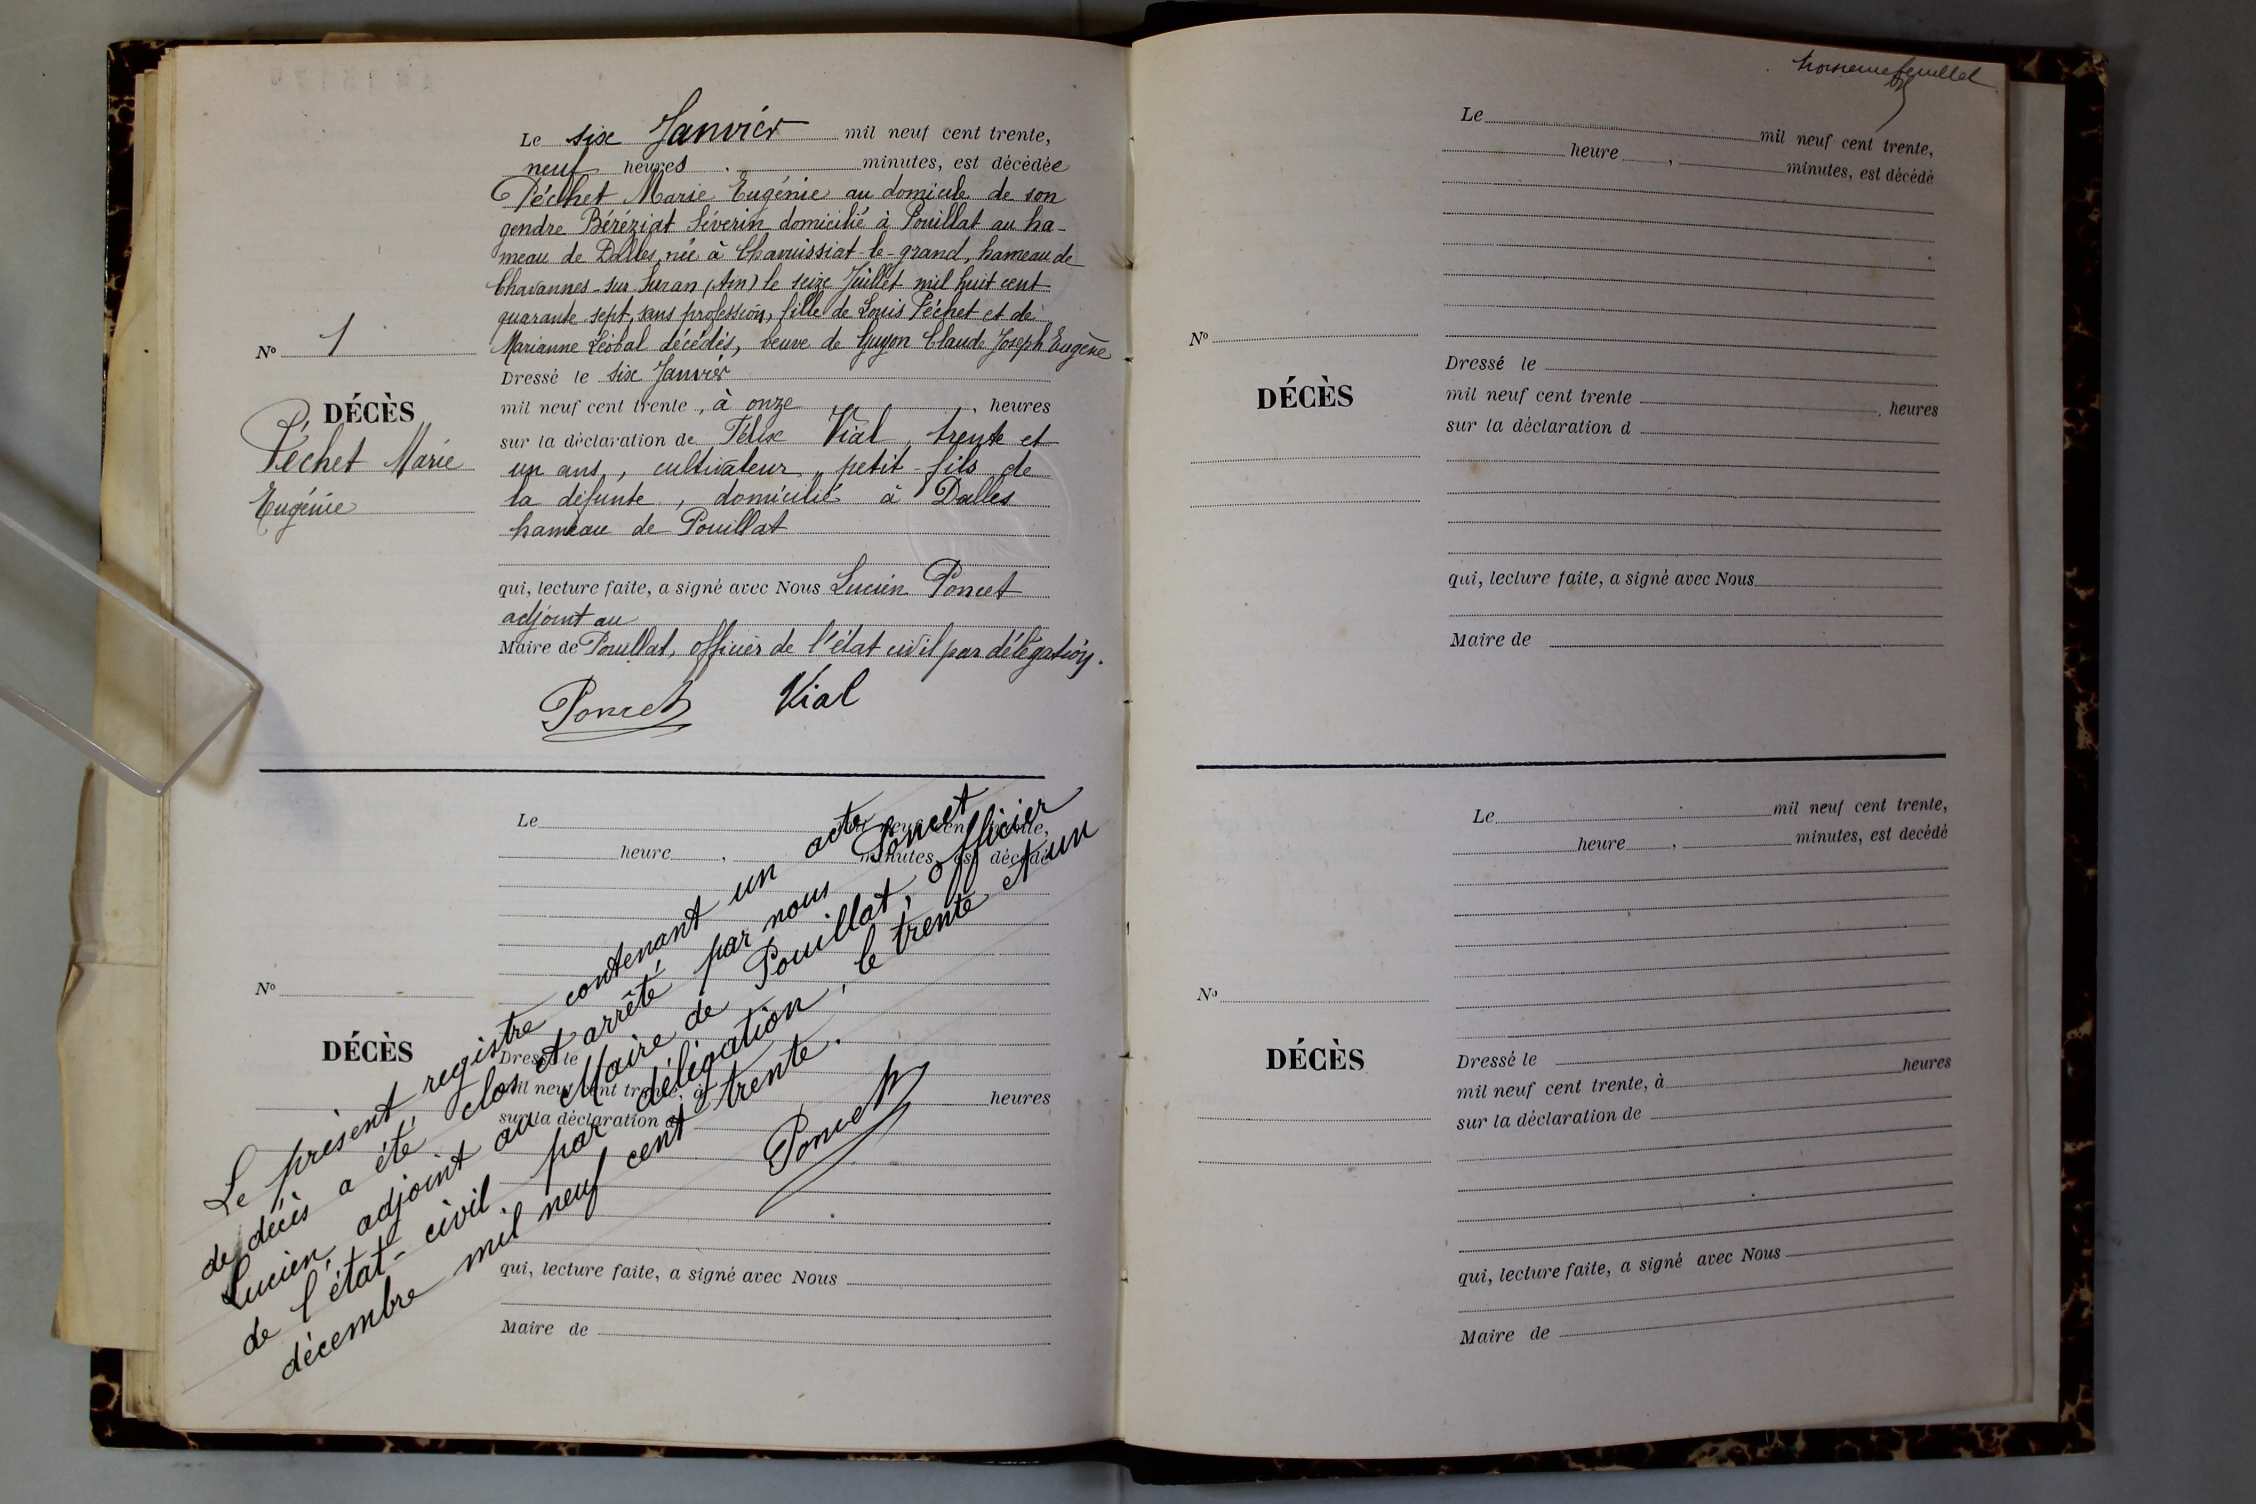 Le six Janvier mil neuf cent trente,
neuf heures , minutes, est décédée
Péchet Marie Eugénie au domicile de son
gendre Béréziat Séverin domicilié à Pouillat au ha-
meau de Dalles, née à Chavuissiat-le-grand, hameau de
Chavannes-sur Suran (Ain) le seize Juillet mil huit cent
quarante-sept, sans profession, fille de Louis Péchet et de
Marianne Léobal décédés, veuve de Guyon Claude Joseph Eugène
Nº 1
DÉCÈS
Péchet Marie
Eugénie
Dressé le six Janvier
mil neuf cent trente, à onze , heures
sur la déclaration de Félix Vial, trente et
un ans, cultivateur, petit-fils de
la défunte, domicilié à Dalles
hameau de Pouillat
qui, lecture faite, a signé avec Nous Lucien Poncet
adjoint au
Maire de Pouillat, officier de l'état civil par délégation.
Poncet Vial
Le mil neuf cent trente,
heure , minutes, est décédé
Nº
DÉCÈS
Dressé le
mil neuf cent trente, à heures
sur la déclaration d
qui, lecture faite, a signé avec Nous
Maire de
Le présent registre contenant un acte
de décès a été clos et arrêté par nous Poncet
Lucien, adjoint au Maire de Pouillat, officier
de l'état-civil par délégation, le trente et un
décembre mil neuf cent trente.
Poncet
troisième feuillet
Le mil neuf cent trente,
heure , minutes, est décédé
Nº
DÉCÈS
Dressé le
mil neuf cent trente , heures
sur la déclaration d
qui, lecture faite, a signé avec Nous
Maire de
Le mil neuf cent trente,
heure , minutes, est decédé
Nº
DÉCÈS
Dressé le
mil neuf cent trente, à heures
sur la déclaration de
qui, lecture faite, a signé avec Nous
Maire de